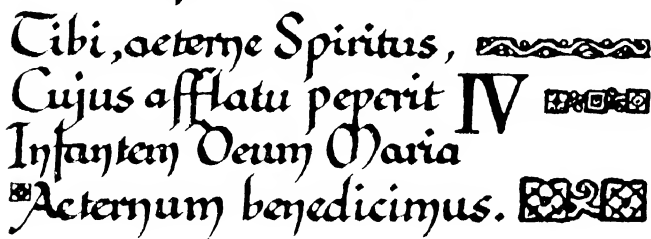 Tibi, aeterne Spiritus,
Cujus afflatu peperit IV
Infantem Deum Maria
Aeternum benedicimus.